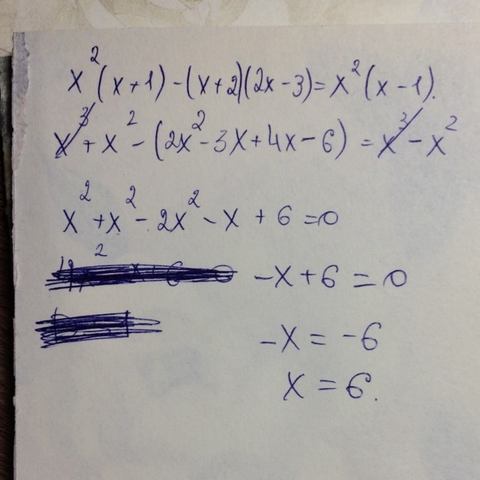 x²(x+1)-(x+2)(2x-3)=x²(x-1).
x³+x²-(2x²-3x+4x-6)=x³-x²
x²+x²-2x²-x+6=0
-x+6=0
-x=-6
x=6.